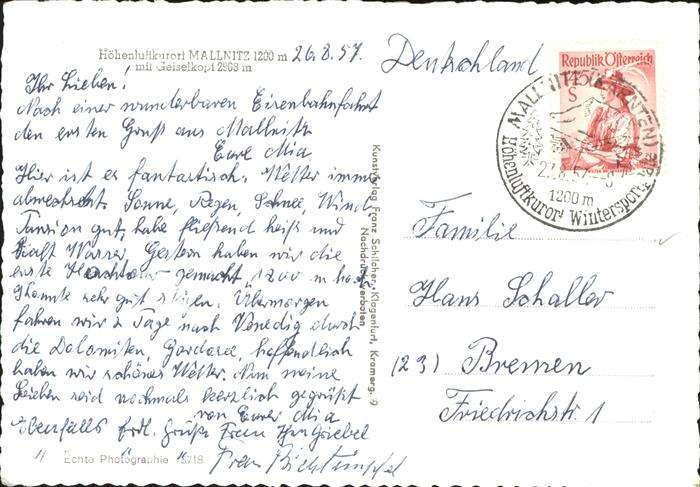 Höhenluftkurort MALLNITZ 1200 m
mit Geiselkopf 2968 m
26.8.57.
Ihr Lieben!
Nach einer wunderbaren Eisenbahnfahrt
den ersten Gruß aus Mallnitz
Eure Mia
Hier ist es fantastisch. Wetter immer
abwechselnd. Sonne, Regen, Schnee, Wind
Pension gut, habe fließend heiß und
kalt Wasser. Gestern haben wir die
erste gemacht 1200 m hoch
konnte sehr gut Übermorgen
fahren wir 2 Tage nach Venedig durch
die Dolomiten, Gardasee, hoffendlich
haben wir schönes Wetter. Nun meine
Lieben seid nochmals herzlich gegrüßt
von Eurer Mia
Ebenfalls frdl. Grüße Frau
" " " Frau
Echte Photographie
Kunstverlag Franz Schilcher, Klagenfurt, Kramerg. 9
Nachdruck verboten
Deutschland
Republik Österreich
1.45
S
MALLNITZ (KÄRNTEN)
27.8.57
1200 m
Höhenluftkurort Wintersport
Familie
Hans Schaller
(23) Bremen
Friedrichstr. 1